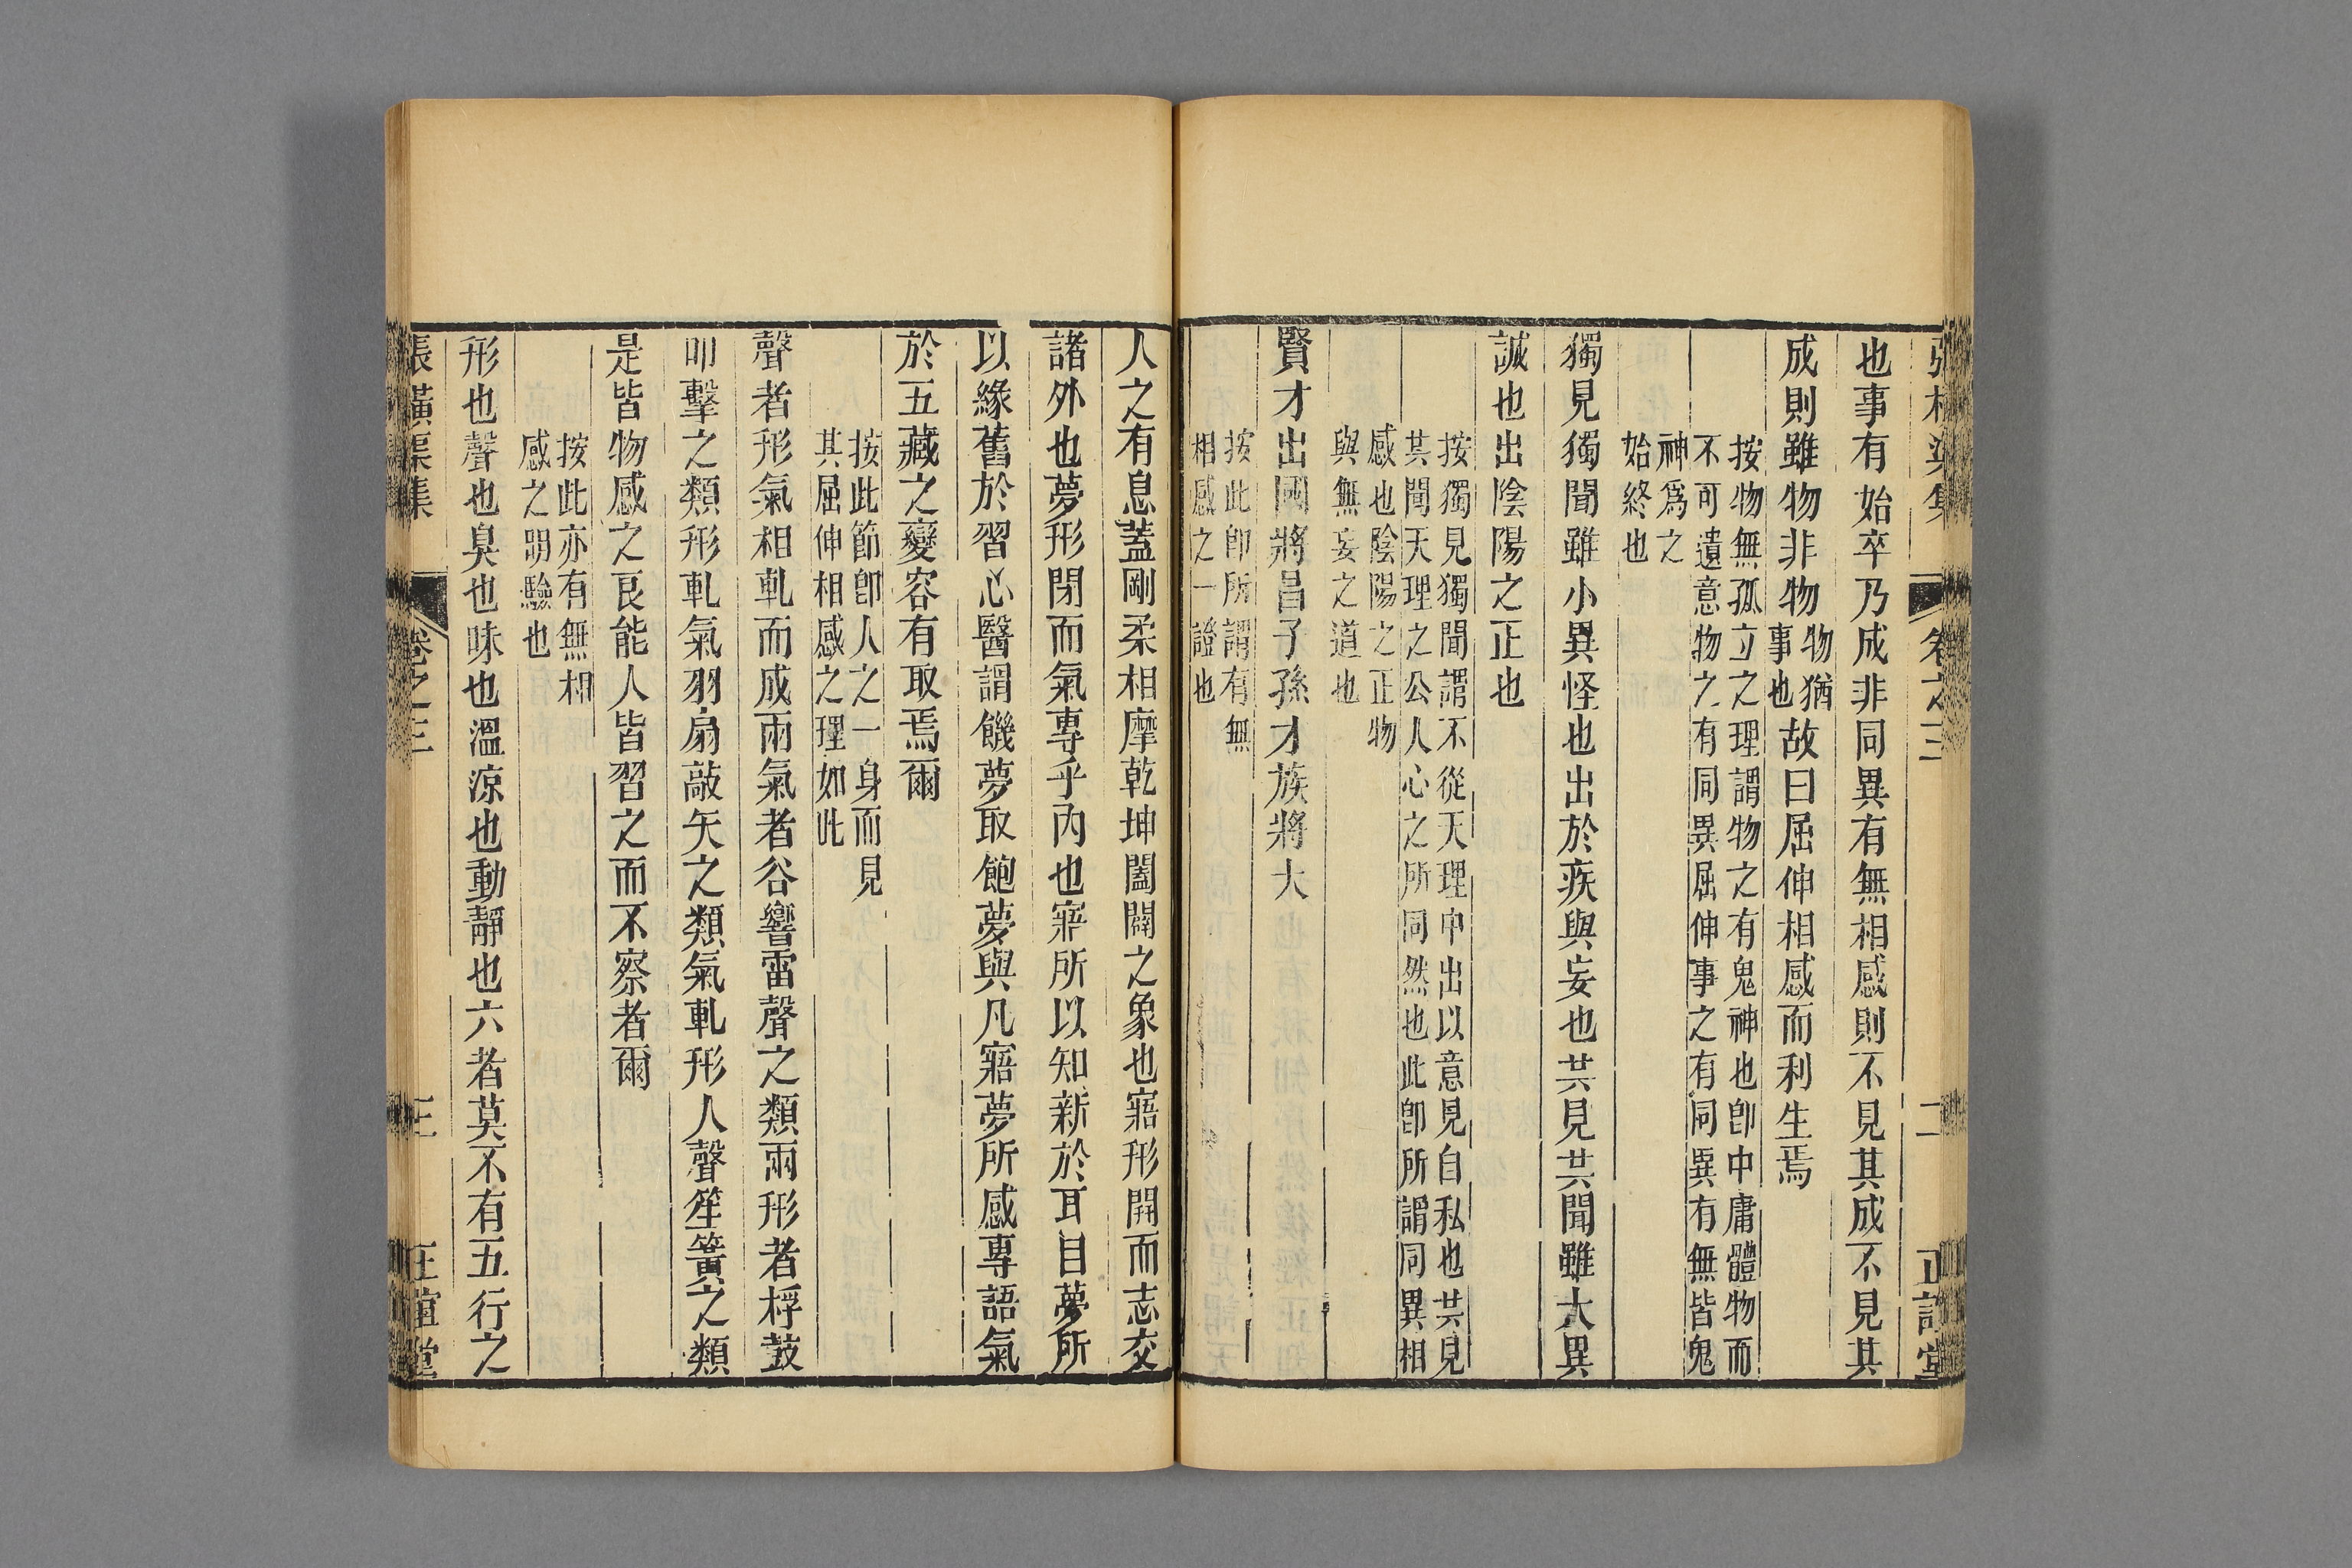 也事有始卒乃成非同異有無相感則不見其成不見其
成則雖物非物物猶事也故曰屈伸相感而利生焉
按物無孤立之理謂物之有鬼神也卽中庸體物而
不可遺意物之有同異屈伸事之有同異有無皆鬼
神爲之
始終也
獨見獨聞雖小異怪也出於疾與妄也共見共聞雖大異
誠也出陰陽之正也
按獨見獨聞謂不從天理中出以意見自私也共見
共聞天理之公人心之所同然也此卽所謂同異相
感也陰陽之正物
與無妄之道也
賢才出國將昌子孫才族將大
按此卽所謂有無
相感之一證也
人之有息蓋剛柔相摩乾坤闔闢之象也寤形開而志交
諸外也夢形閉而氣專乎內也寤所以知新於耳目夢所
以緣舊於習心醫謂饑夢取飽夢與凡寤夢所感專語氣
於五藏之變容有取焉爾
按此節卽人之一身而見
其屈伸相感之理如此
聲者形氣相軋而成兩氣者谷響雷聲之類兩形者桴鼓
叩擊之類形軋氣羽扇敲矢之類氣軋形人聲笙簧之類
是皆物感之良能人皆習之而不察者爾
按此亦有無相
感之明驗也
形也聲也臭也味也溫涼也動靜也六者莫不有五行之
張橫渠集 卷之三 三 正誼堂